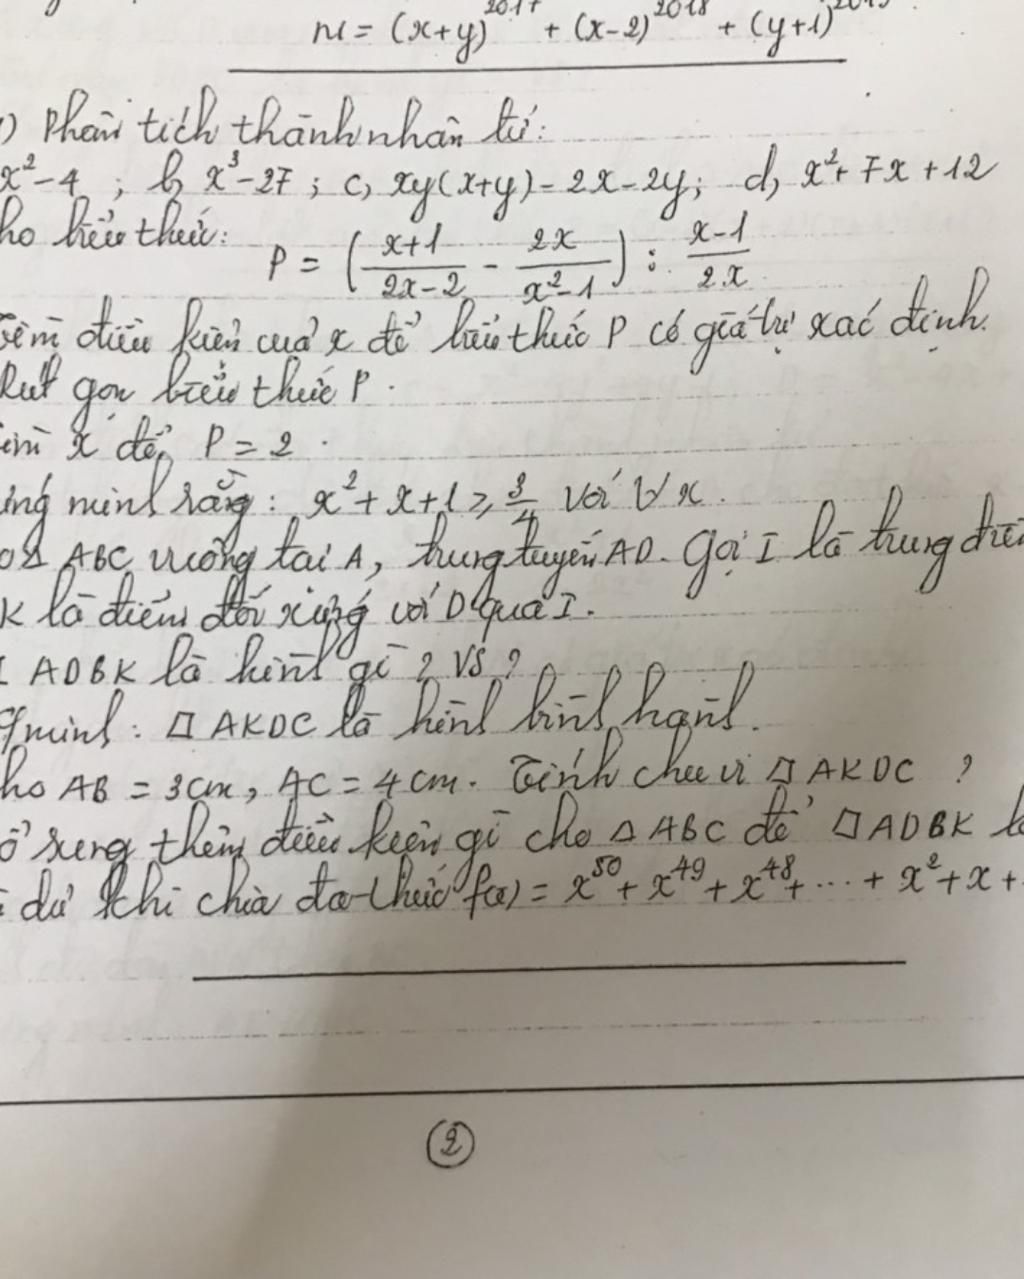 M = (x+y)²⁰¹⁷ + (x-2)²⁰¹⁸ + (y+1)²⁰¹⁹
) Phân tích thành nhân tử:
x²-4 ; b, x³-27 ; c, xy(x+y)-2x-2y; d, x²+7x+12
ho biểu thức: P = (x+1/2x-2 - 2x/x²-1) : x-1/2x
điều kiện của x để biểu thức P có giá trị xác định.
Rút gọn biểu thức P.
x để P = 2.
ng minh rằng: x²+x+1 ≥ 3/4 với ∀x.
Δ ABC vuông tại A, trung tuyến AD. Gọi I là trung điể
K là điểm đối xứng với D qua I.
ADBK là hình gì? Vs?
minh: ▱ AKDC là hình bình hạnh.
ho AB = 3cm, AC = 4cm. Tính chu vi ▱ AKDC ?
xung thêm điều kiện gì cho Δ ABC để ▱ADBK l
dư khi chia đa thức f(x) = x⁵⁰ + x⁴⁹ + x⁴⁸ + ... + x² + x +
②